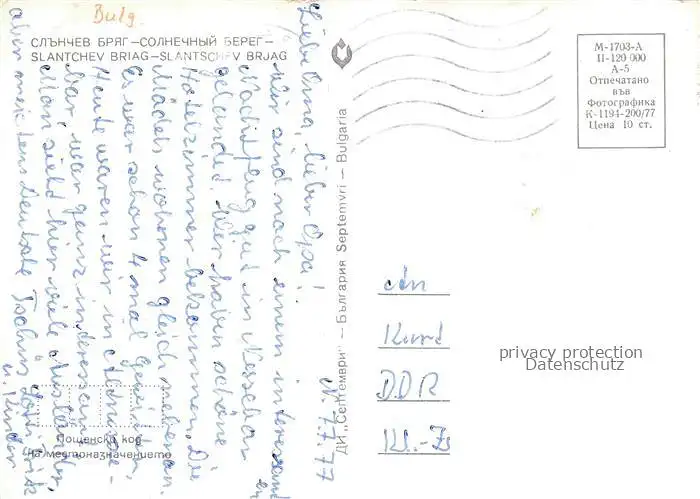 Bulg.
СЛЪНЧЕВ БРЯГ—СОЛНЕЧНЫЙ БЕРЕГ—
SLANTCHEV BRIAG—SLANTSCHEV BRJAG
Liebe Oma, lieber Opa!
Wir sind nach einem interessanten
Nachtflug gut in Nessebar
gelandet. Wir haben schöne
Hotelzimmer bekommen. Die
Mädels wohnen gleich nebenan.
Es war schon 4 mal
Heute waren wir in
bar, war ganz interessant.
Man sieht hier viele Ausländer,
aber meistens Deutsche. Tschüs
u. Kinder
N. 7.7.77
Пощенски код
на местоназначението
ДИ „Септември" — България Septemvri — Bulgaria
М-1703-А
II-120 000
А-5
Отпечатано
във
Фотографика
К-1194-200/77
Цена 10 ст.
An
DDR
privacy protection
Datenschutz